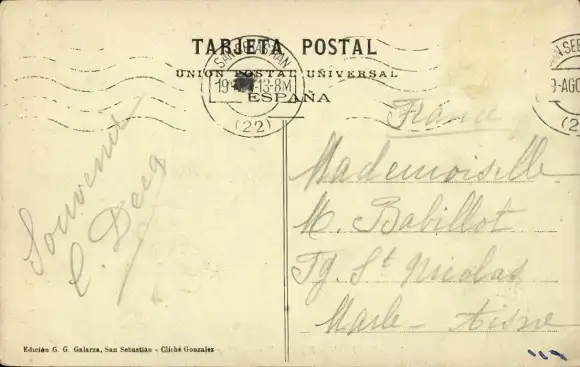 TARJETA POSTAL
UNIÓN POSTAL UNIVERSAL
ESPAÑA
SAN SEBASTIAN
13-8M
(22)
N SEB
9-AGO
(2
France
Mademoiselle
M. Babillot
Fg. St Nicolas
Marle - Aisne
Souvenir
C. Deca
Edición G. G. Galarza, San Sebastián - Cliché Gonzalez